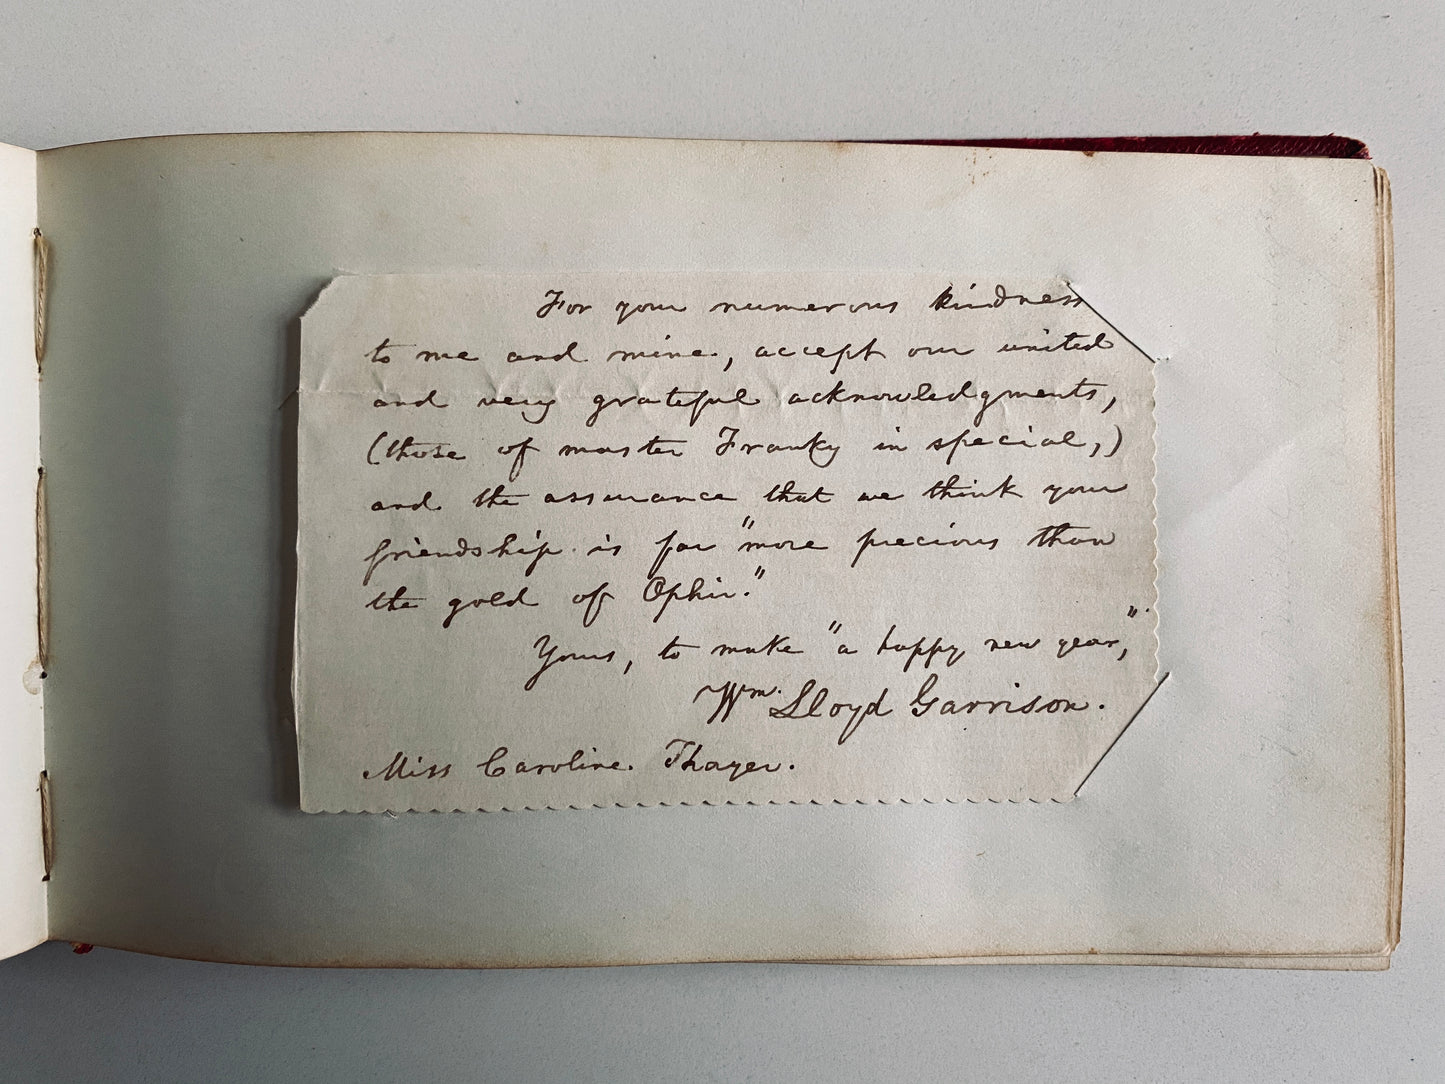 For your numerous kindness
to me and mine, accept our united
and very grateful acknowledgments,
(those of master Franky in special,)
and the assurance that we think your
friendship is far "more precious than
the gold of Ophir."
Yours, to make "a happy new year,"
Wm. Lloyd Garrison.
Miss Caroline Thayer.